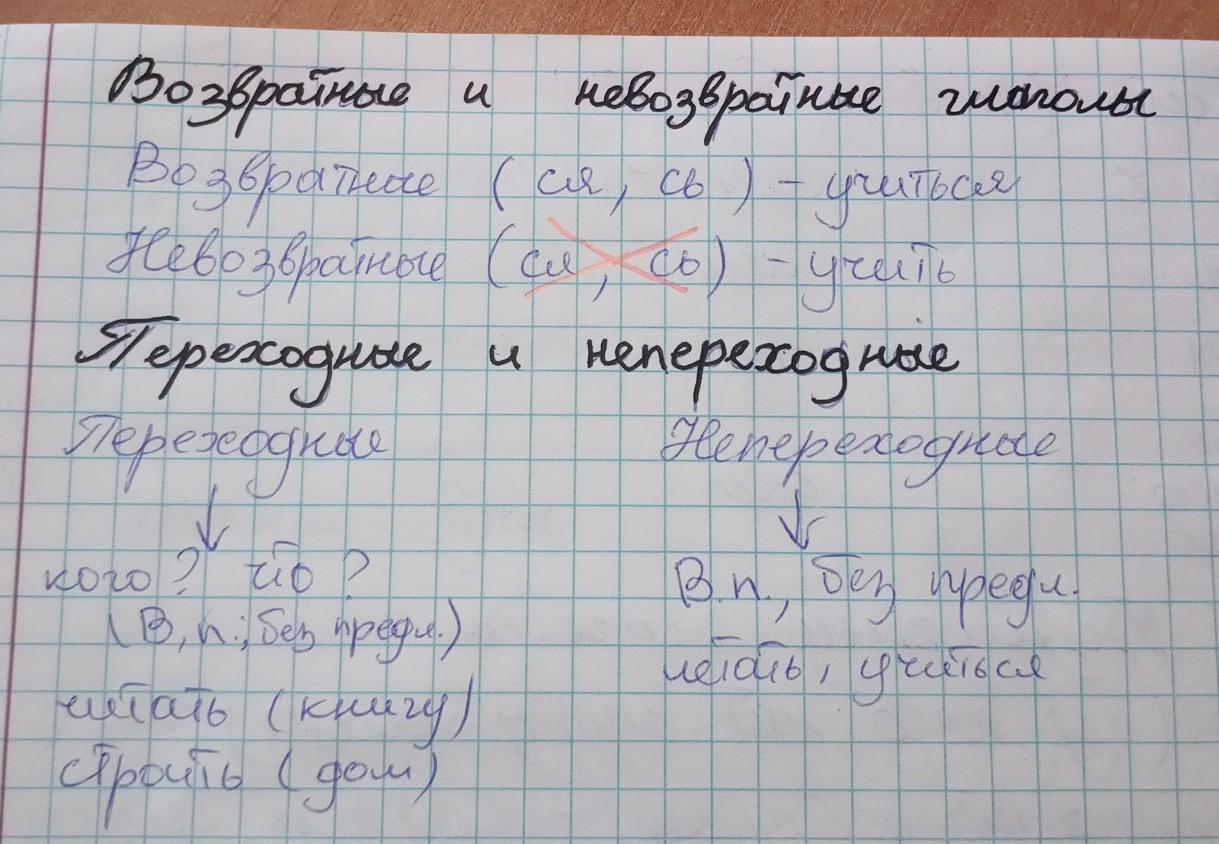 Возвратные и невозвратные глаголы
Возвратные (ся, сь) - учиться
Невозвратные (ся, сь) - учить
Переходные и непереходные
Переходные
Непереходные
кого? что?
(В.п.; без предл.)
читать (книгу)
строить (дом)
В.п., без предл.
летать, учиться